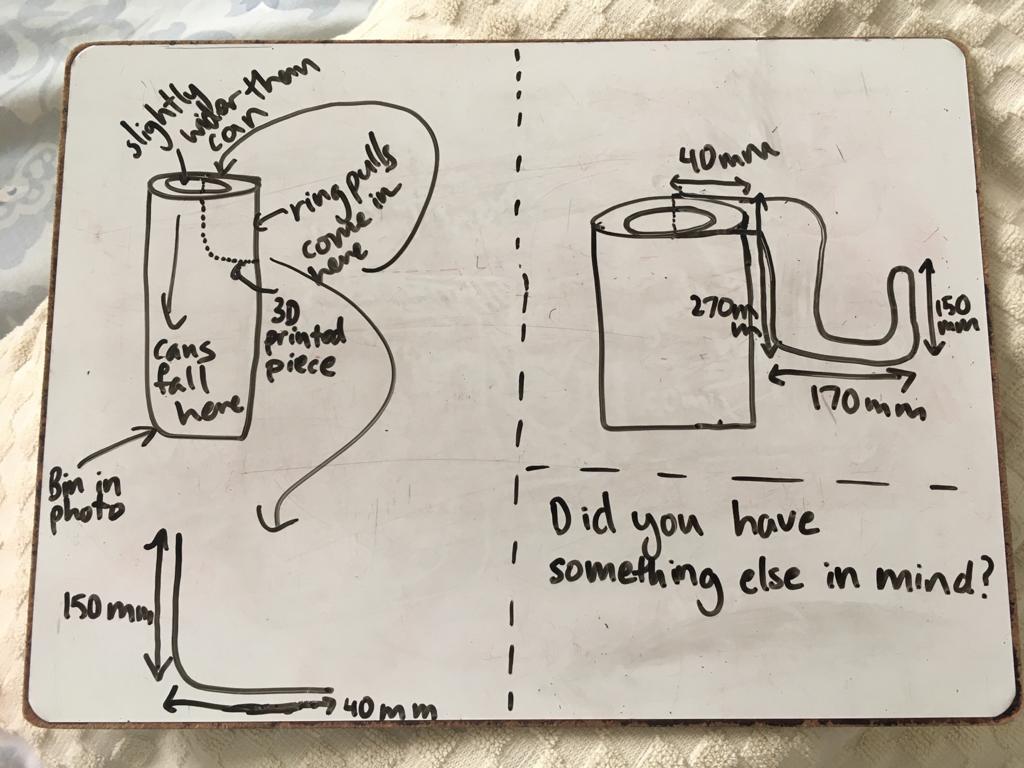 slightly
wider them
can
ring pulls
come in
here
3D
printed
piece
cans
fall
here
Bin in
photo
150mm
40mm
40mm
270m
m
150
mm
170mm
Did you have
something else in mind?